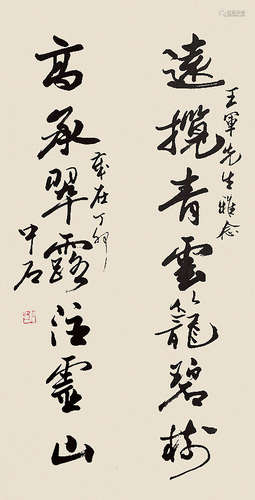 遠攬青雲籠碧樹
王軍先生雅念
高承翠露注靈山
歲在丁卯
中石